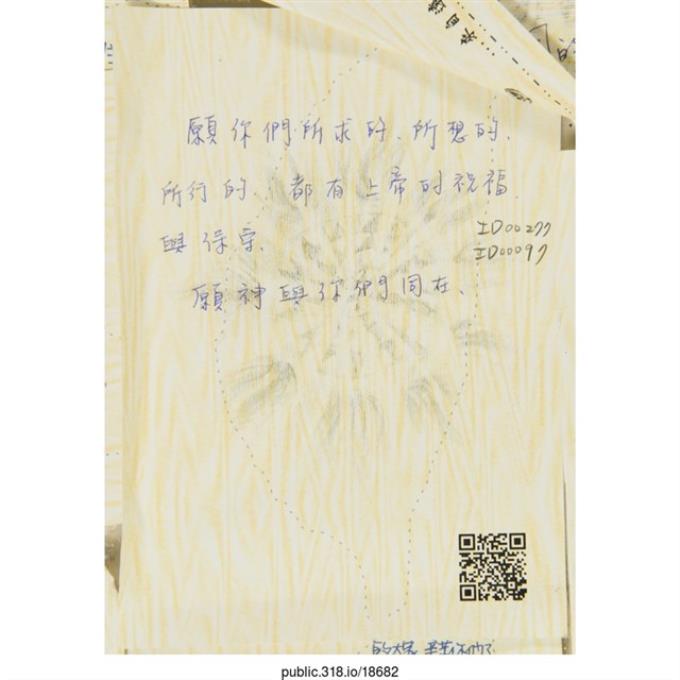 來自
的
願你們所求的、所想的、
所行的、都有上帝的祝福
與保守、
ID00277
ID00097
願神與你們同在、
public.318.io/18682